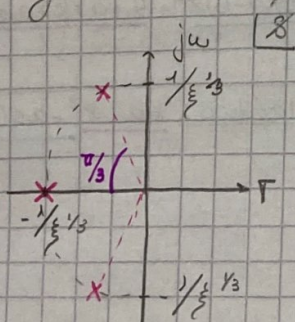 jω
S
1/ξ^1/3
π/3
σ
-1/ξ^1/3
1/ξ^1/3